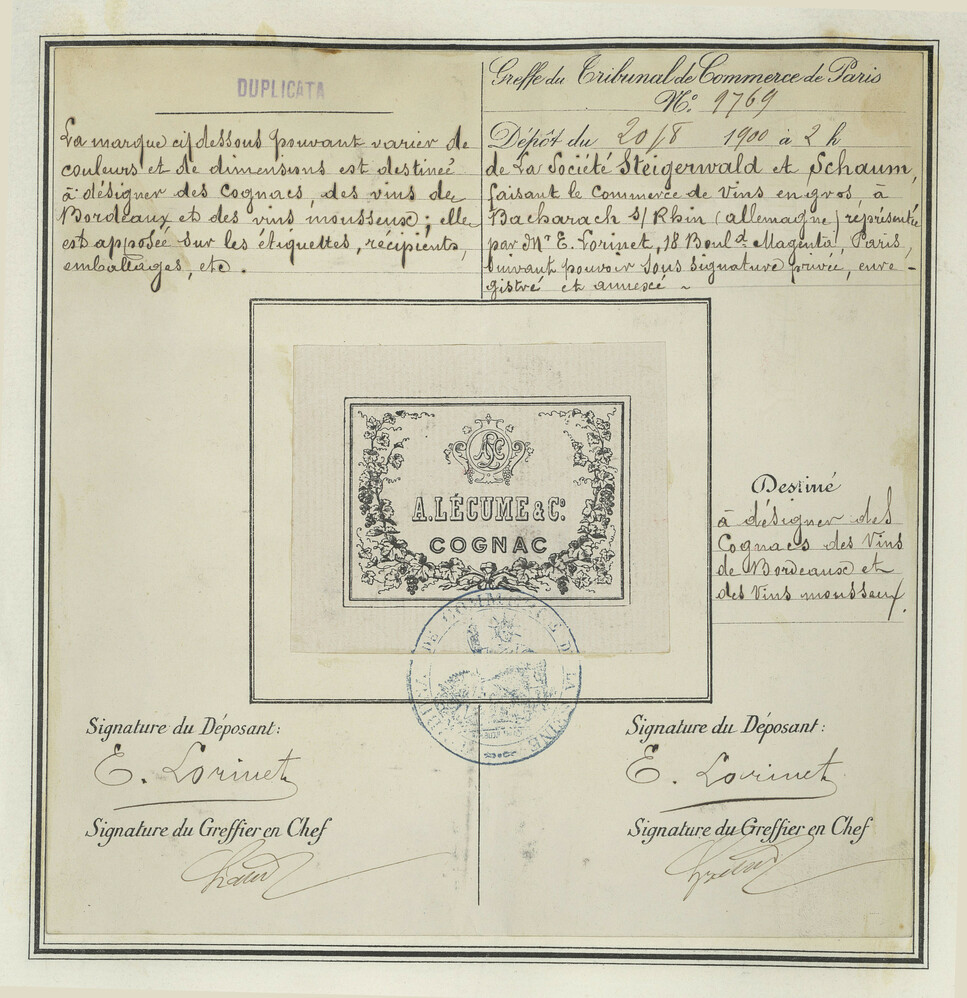 DUPLICATA
La marque ci-dessous pouvant varier de
couleurs et de dimensions est destinée
à désigner des Cognacs, des vins de
Bordeaux et des vins mousseux; elle
est apposée sur les étiquettes, récipients,
emballages, etc.
Greffe du Tribunal de Commerce de Paris
No. 9769
Dépôt du 20/8 1900 à 2 h
de La Société Steigerwald et Schaum,
faisant le Commerce de Vins en gros, à
Bacharach s/ Rhin (allemagne) représentée
par Mr E. Lorinet, 18 Bould Magenta, Paris,
suivant pouvoir sous signature privée, enre-
gistré et annexé ~
A. LÉCUME & Co.
COGNAC
Destiné
à désigner des
Cognacs des Vins
de Bordeaux et
des Vins mousseux.
TRIBUNAL DE COMMERCE DE LA SEINE
Signature du Déposant:
E. Lorinet
Signature du Greffier en Chef
Signature du Déposant:
E. Lorinet
Signature du Greffier en Chef